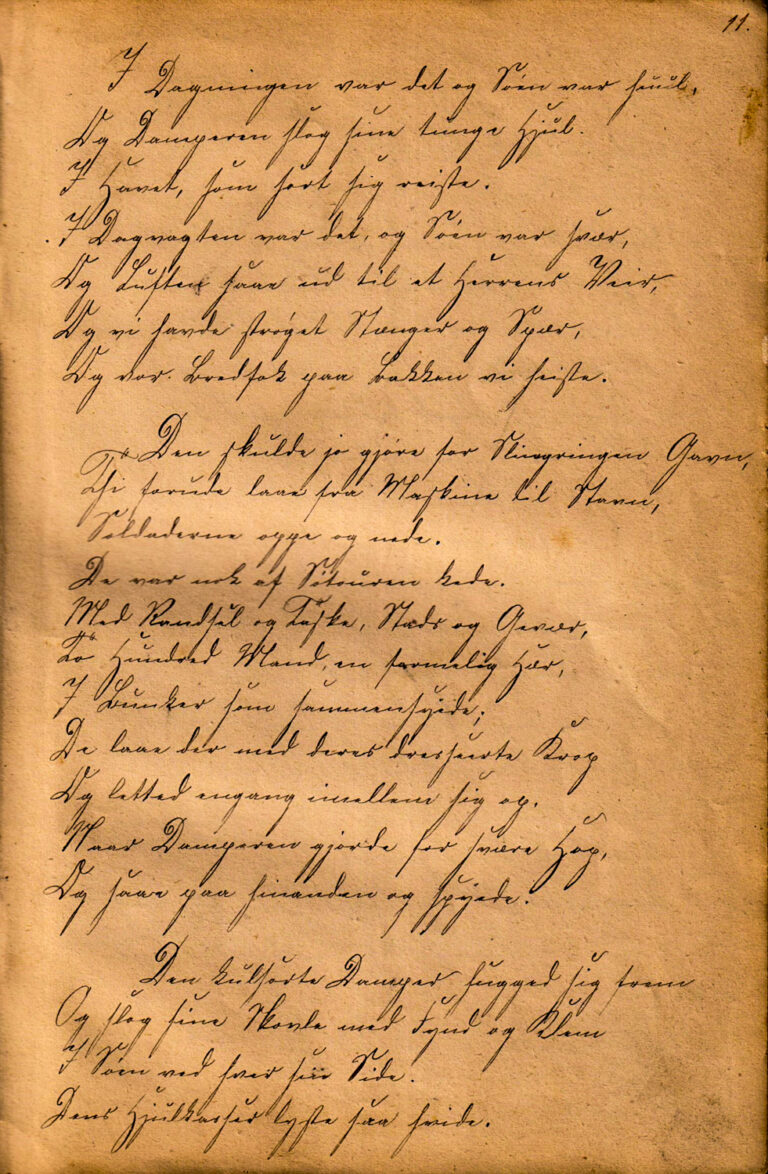 11.
I Dagningen var det og Söen var huul,
Og Damperen slog sine tunge Hjul
I Havet, som sort sig reiste.
I Dagvagten var det, og Söen var svær,
Og Luften saae ud til et Herrens Veir,
Og vi havde strøget Stænger og Spær,
Og vor Bredfok paa Bakken vi heiste.
Den skulde jo gjöre for Slingringen Gavn,
Thi forude laae fra Maskine til Stavn,
Soldaterne oppe og nede.
De var nok af Sötouren kede.
Med Randsel og Taske, Stads og Gevær,
To Hundred Mand, en farmelig Hær,
I Bunker som sammensyede;
De laae der med deres dresseerte Krop
Og letted engang imellem sig op,
Naar Damperen gjorde for svære Hop,
Og saae paa hinanden og spyede.
Den kulsorte Damper hugged sig frem
Og slog sine Skovle med Fynd og Klem
I Söen ved hver sin Side.
Dens Hjulkasser lyste saa hvide.